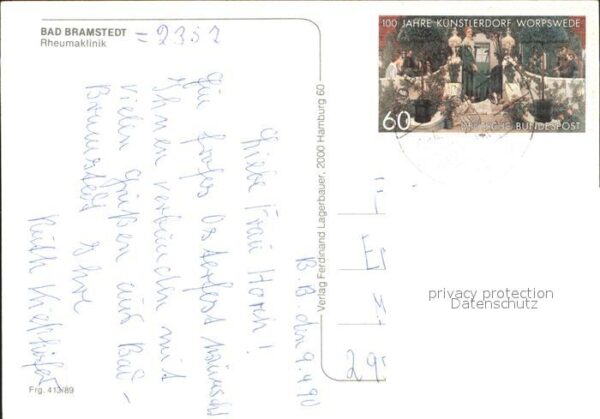 BAD BRAMSTEDT
Rheumaklinik
= 2352
100 JAHRE KÜNSTLERDORF WORPSWEDE
60 DEUTSCHE BUNDESPOST
B.B. den 9.4.90
Liebe Frau Horch!
Ein frohes Osterfest wünscht
Ihnen verbunden mit
vielen Grüßen aus Bad-
Bramstedt Ihre
Ruth
Verlag Ferdinand Lagerbauer, 2000 Hamburg 60
29
privacy protection
Datenschutz
Frg. 413/89